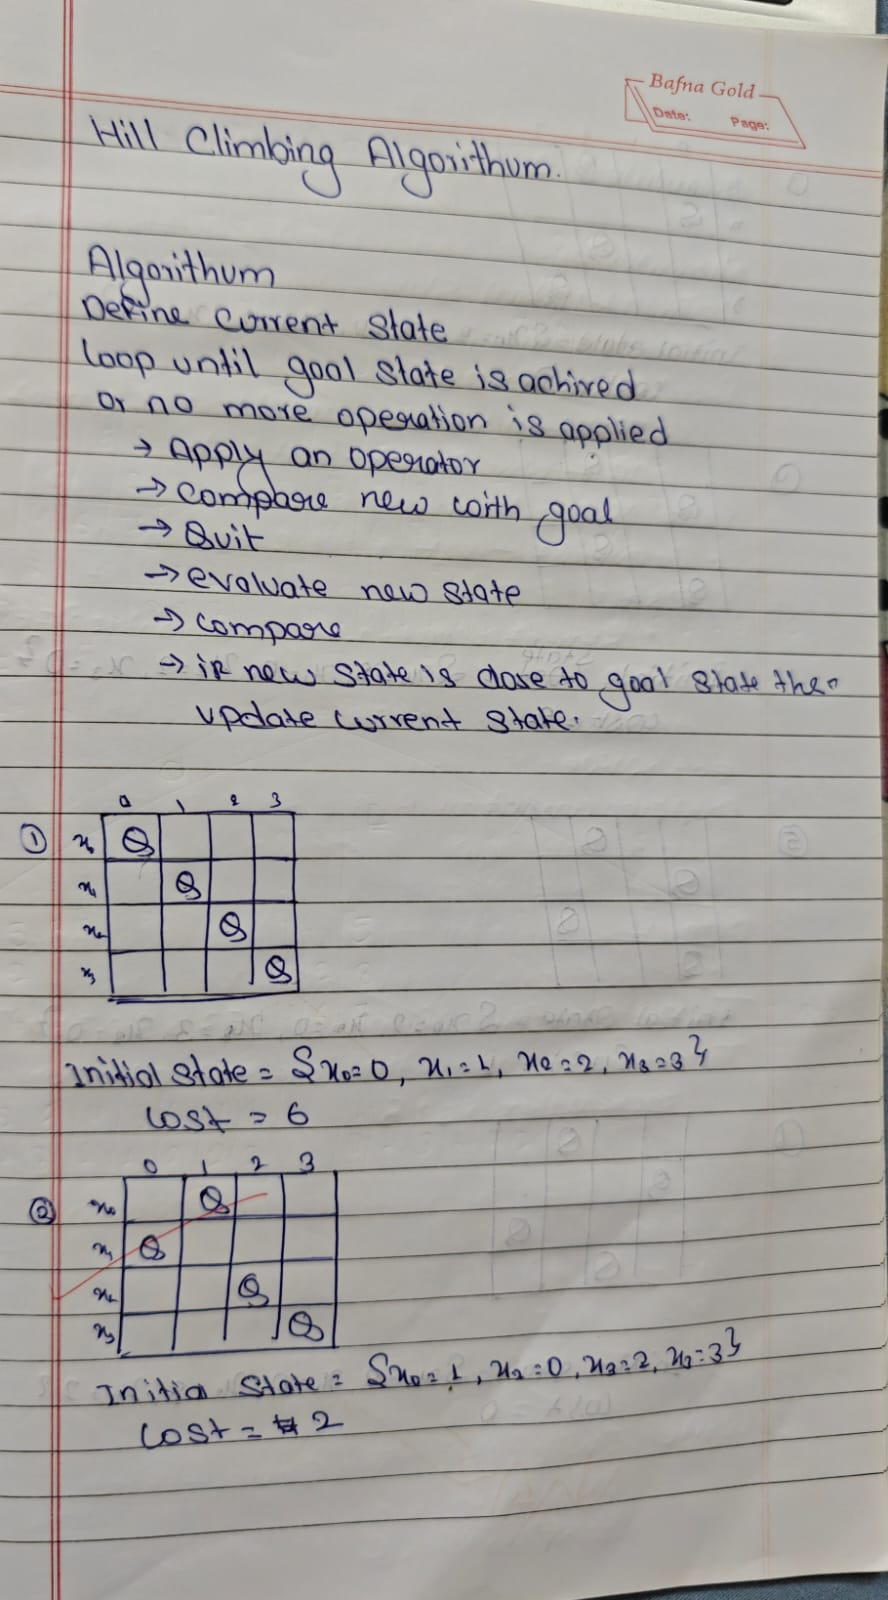 Bafna Gold
Date: Page:
Hill Climbing Algorithum.
Algorithum
Define current state
loop until goal state is achired
or no more operation is applied
→ Apply an operator
→ compare new with goal
→ Quit
→ evaluate new state
→ compare
→ if new state is close to goal state then
update current state.
0 1 2 3
① x₀ Q
x₁ Q
x₂ Q
x₃ Q
Initial state = {x₀=0, x₁=1, x₂=2, x₃=3}
cost = 6
0 1 2 3
② x₀ Q
x₁ Q
x₂ Q
x₃ Q
Initial state = {x₀=1, x₂=0, x₂=2, x₃=3}
cost = 2